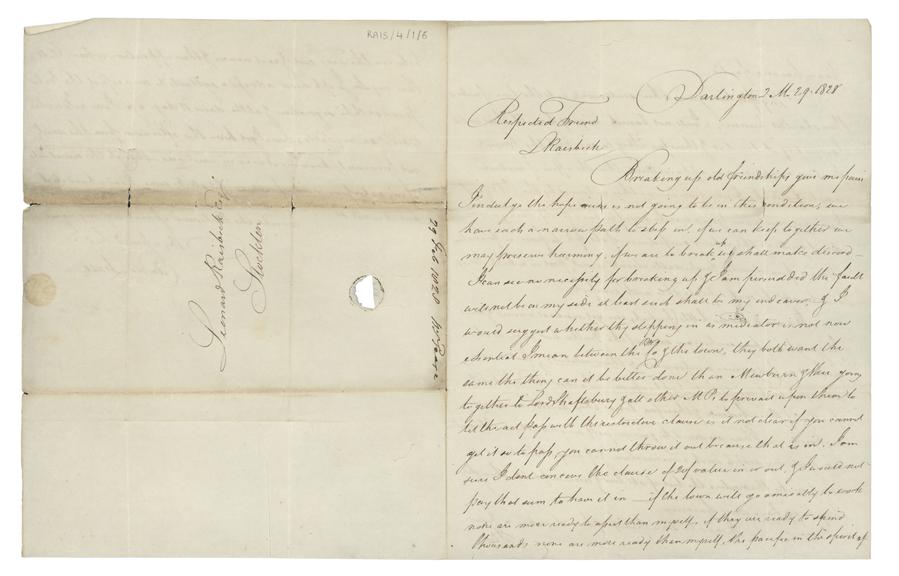 RAIS/4/1/6
Leonard Raisbeck Esqr
Stockton
29 Feb 1828
Darlington 2 M. 29. 1828
Respected Friend
L Raisbeck
Breaking up old friendships give me pain
I indulge the hope ours is not going to be in this condition, we
have such a narrow path to step in, if we can keep together we
may preserve harmony, if we are to break up shall make discord –
I can see no necessity for breaking up & I am persuaded the fault
will not be on my side at least such shall be my endeavor, & I
would suggest whether thy stepping in as mediator is not now
essential I mean between the Rway Co & the town, they both want the
same the thing can it be better done than Mewburn & thee going
together to Lord Shaftesbury & all other M.Ps to prevail upon them to
let the act pass with the restrictive clause is it not clear if you cannot
get it so to pass, you cannot throw it out because that is in. I am
sure I dont conceive the clause of 20/ value in or out, & I would not
pay that sum to have it in — if the town will go amicably to work
none are more ready to assist than myself, if they are ready to spend
thousands none are more ready than myself, the pacific in the spirit of